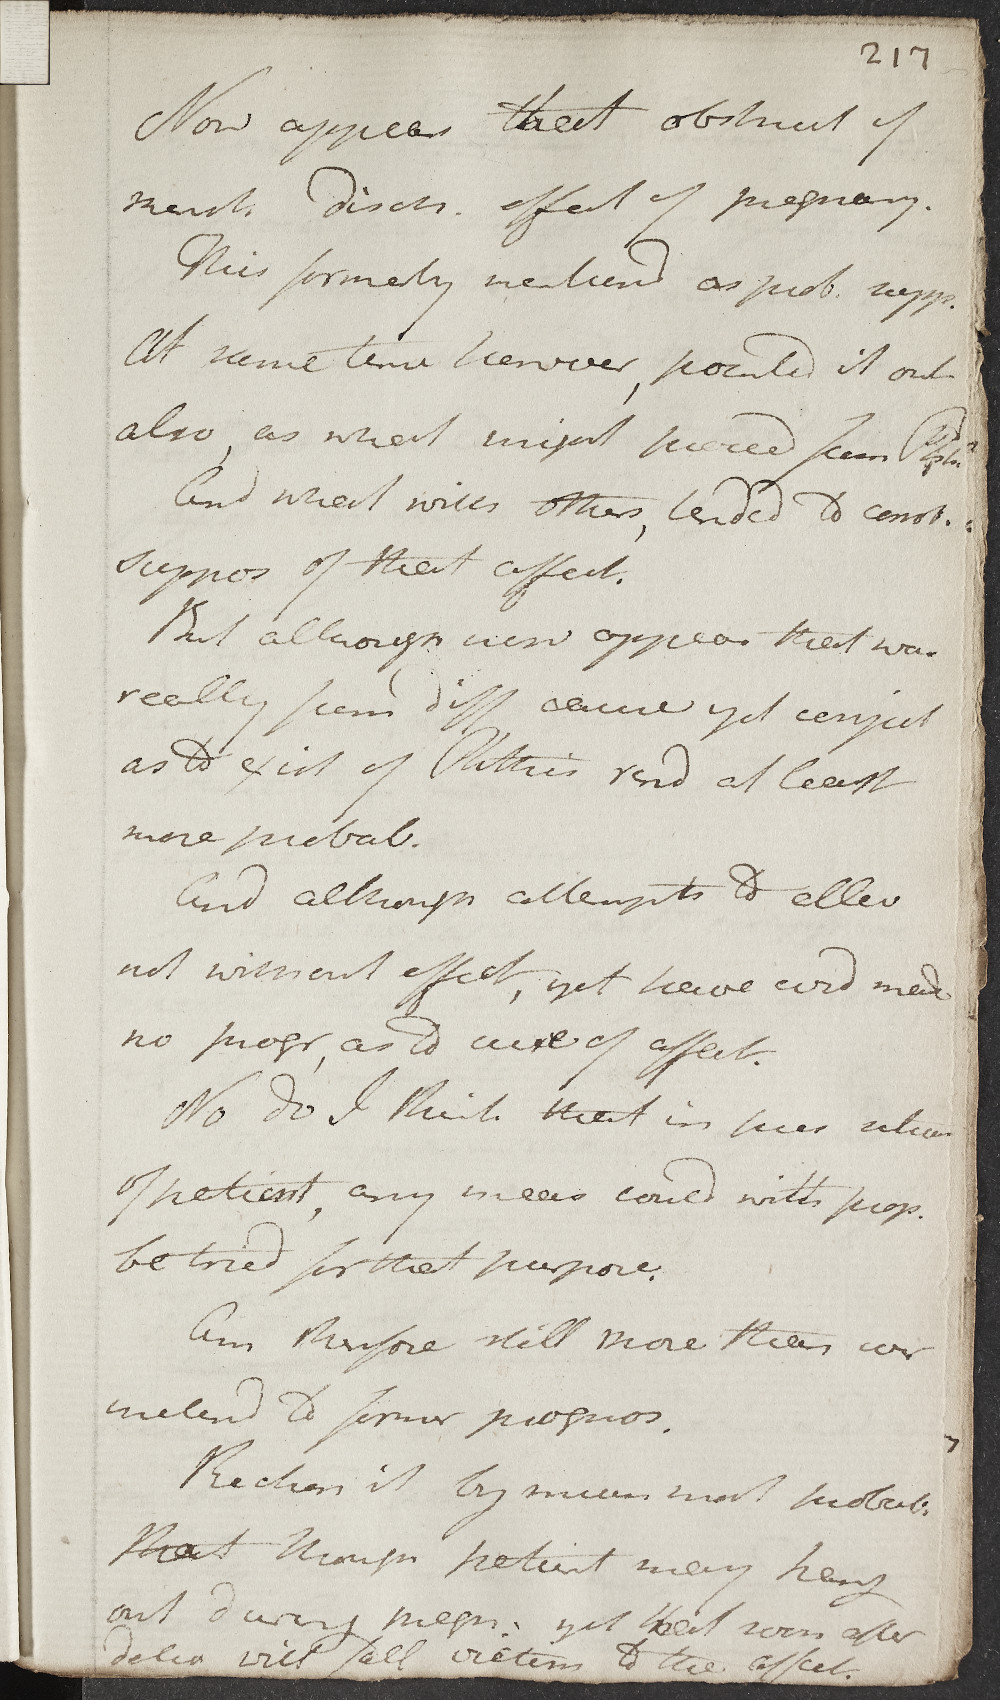 217
Now appears that obstruct of
menst. disch. effect of pregnancy.
This formerly mentiond as prob. supp.
At same time however, pointed it out
also, as what might proceed from Phthis.
And what with others, tended to conob.
suppos of that affect.
But although now appears that was
really from diff cause yet conject
as to exist of Phthisis rend at least
more probab.
And although attempts to allev
not without effect, yet have evid made
no progr, as to cure of affect.
No do I think that in pres
of patient, any means could with prop.
be tried for that purpose.
Am therefore still more than ever
inclend to former prognos.
Reckon it by much most probab.
that though patient may hang
out during pregn. yet that soon after
deliv will fall victim to the affect.